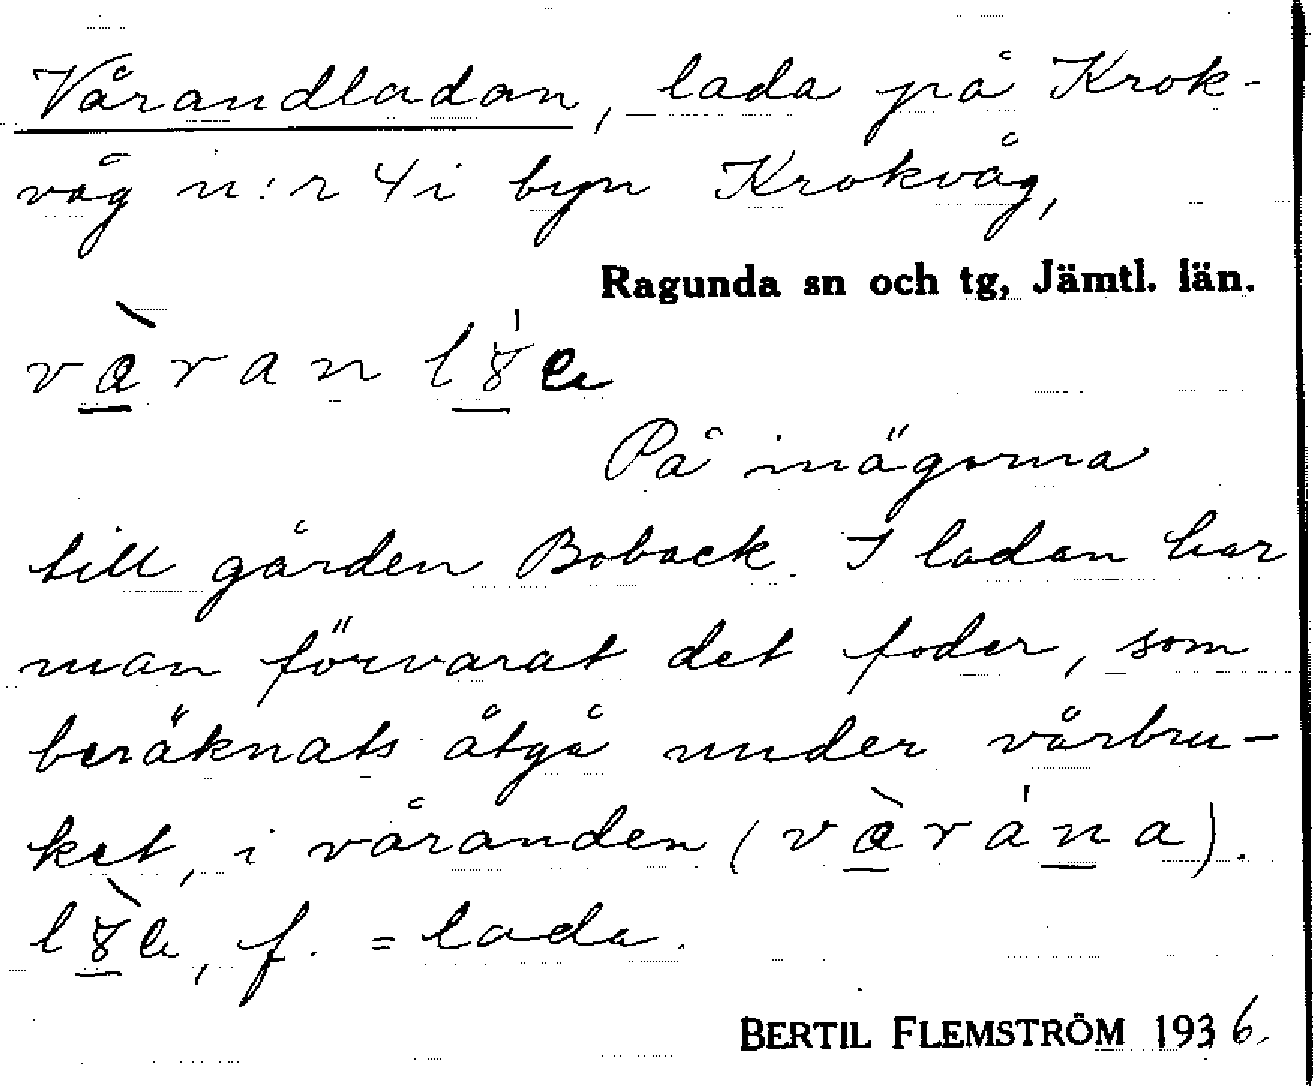 Vårandladan, lada på Krok-
våg n:r 4 i byn Krokvåg,
Ragunda sn och tg, Jämtl. län.
På inägorna
till gården Boback. I ladan har
man förvarat det foder, som
beräknats åtgå under vårbru-
ket, i våranden
f. = lada.
BERTIL FLEMSTRÖM 1936.